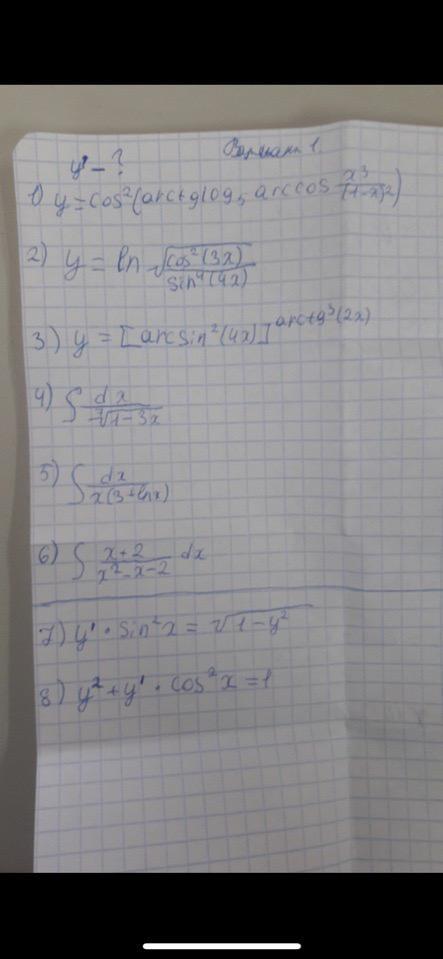 y' - ?
Вариант 1.
1) y = cos²(arctg log₅ arccos x³/(1-x)²)
2) y = ln √(cos²(3x)/sin⁴(4x))
3) y = [arcsin²(4x)]^arctg³(2x)
4) ∫ dx/⁷√(1-3x)
5) ∫ dx/x(3+lnx)
6) ∫ (x+2)/(x²-x-2) dx
7) y' · sin²x = √(1-y²)
8) y² + y' · cos²x = 1